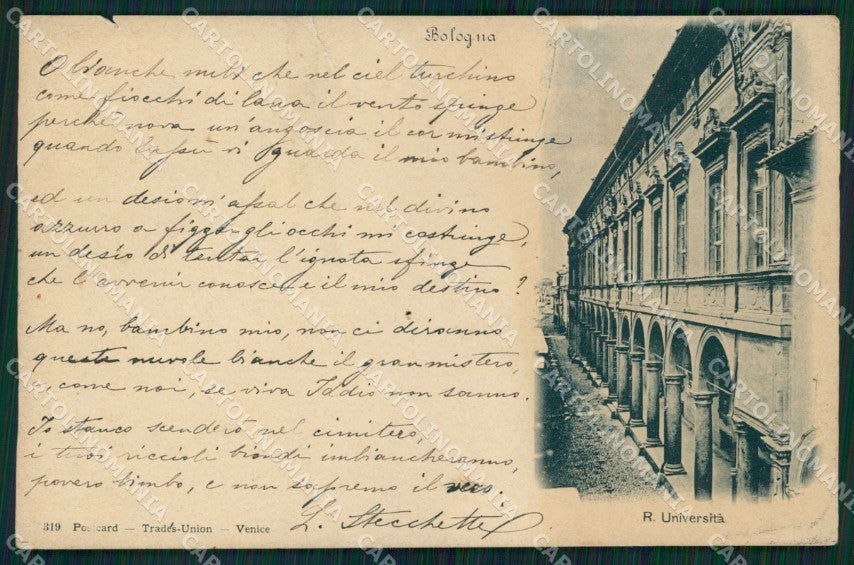 Bologna
O bianche nubi che nel ciel turchino
come fiocchi di lana il vento spinge
perchè nova un'angoscia il cor mi stringe
quando lassù vi guarda il mio bambino,
ed un desio m'assal che nel divino
azzurro a figger gli occhi mi costringe,
un desio di tentar l'ignota sfinge
che l'avvenir conosce e il mio destino?
Ma no, bambino mio, non ci diranno
queste nuvole bianche il gran mistero,
, come noi, se viva Iddio non sanno.
Io stanco scenderò nel cimitero,
i tuoi riccioli biondi imbiancheranno,
povero bimbo, e non sapremo il vero.
L. Stecchetti
319 Postcard — Trades-Union — Venice
R. Università
CARTOLINOMANIA